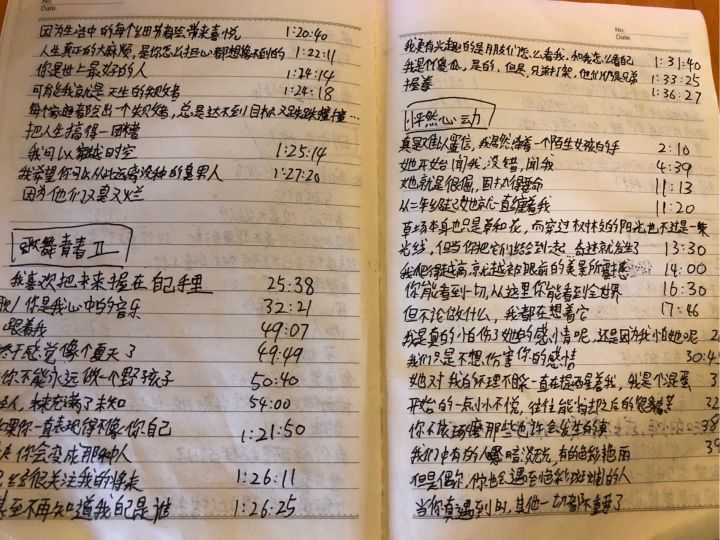 因为生活中的每个细节都会带来喜悦 1:20:40
人生真正的大麻烦，是你怎么担心都想像不到的 1:22:11
你是世上最好的人 1:24:14
可能我就是天生的失败者 1:24:18
每个家庭都会出一个失败者，总是达不到目标又跌跌撞撞…
把人生搞得一团糟
我可以穿越时空 1:25:14
我希望你可以从此远离没种的臭男人 1:27:20
因为他们又臭又烂
歌舞青春 II
我喜欢把未来握在自己手里 25:38
你是我心中的音乐 32:21
跟着我 49:07
终于感觉像个夏天了 49:49
你不能永远做一个野孩子 50:40
未来充满了未知 54:00
如果你一直表现得不像你自己 1:21:50
你会变成那种人
已经很关注我的将来 1:26:11
甚至不再知道我自己是谁 1:26:25
No.
Date
我更有兴趣的是朋友们怎么看我，和我怎么看自己 1:31:40
我是傻瓜，是的，但是，兄弟打架，他们仍是兄弟 1:33:25
握着 1:36:27
怦然心动
真是难以置信，我居然牵着一个陌生女孩的手 2:10
她开始闻我，没错，闻我 4:39
她就是很倔，固执得要命 11:13
从二年级起她就一直缠着我 11:20
草场本身也只是草和花，而穿过枝桠的阳光也不过是一束
光线，但当你把它们结合到一起，奇迹就发生了 13:30
我爬得越高，就越被眼前的美景所震撼 14:00
你能看到一切，从这里你能看到全世界 16:30
但不论做什么，我都在想着它 17:46
我是真的怕伤了她的感情呢，还是因为我怕她呢
我们只是不想伤害你的感情 30:4
她对我的怀理不睬一直在提醒着我，我是个混蛋 3
开始的一点小小不慌，往往能省却之后的很多痛苦 32
你不该琢磨那些也许会发生的事 38
我们中有的人黯淡无光，有的色彩艳丽 3
但是偶尔，你也会遇到色彩斑斓的人
当你真遇到时，其他一切都不重要了